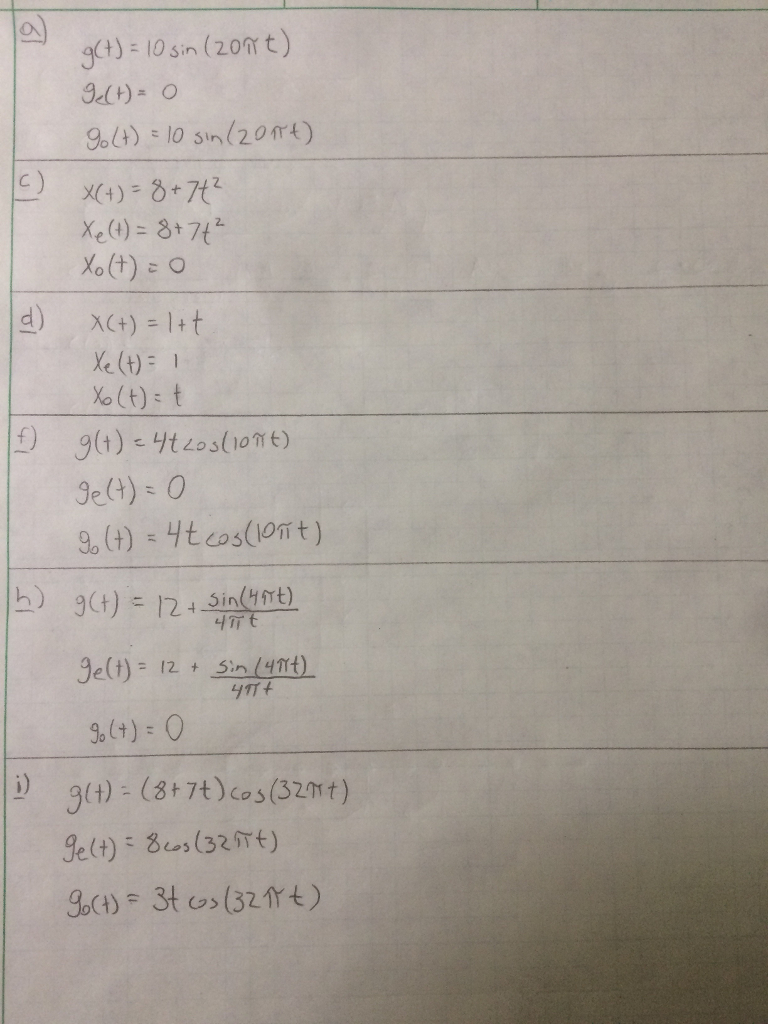 a)
g(t) = 10 sin(20πt)
ge(t) = 0
go(t) = 10 sin(20πt)
c)
x(t) = 8+7t²
Xe(t) = 8+7t²
Xo(t) = 0
d)
x(t) = 1+t
Xe(t) = 1
Xo(t) = t
f)
g(t) = 4t cos(10πt)
ge(t) = 0
go(t) = 4t cos(10πt)
h)
g(t) = 12 + sin(4πt)/4πt
ge(t) = 12 + sin(4πt)/4πt
go(t) = 0
i)
g(t) = (8+7t) cos(32πt)
ge(t) = 8 cos(32πt)
go(t) = 3t cos(32πt)